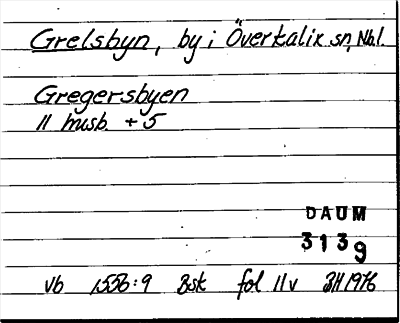 Grelsbyn, by i Överkalix sn, Nb.l.
Gregersbyen
11 husb. + 5
DAUM
3139
vb 1556:9 Bsk fol 11v BH 1976